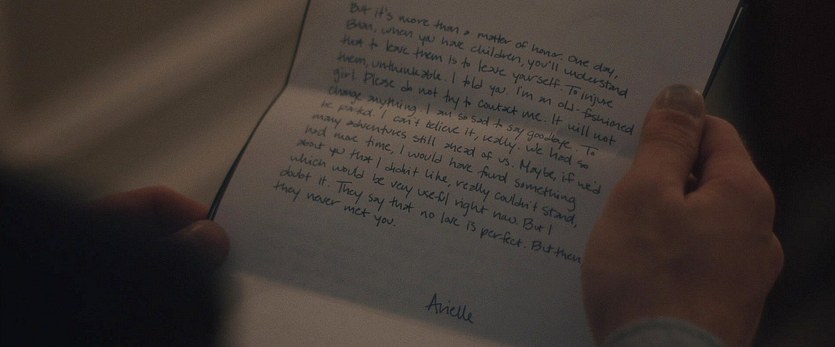 But it's more than a matter of honor. One day,
Brian, when you have children, you'll understand
that to leave them is to leave yourself. To injure
them, unthinkable. I told you I'm an old-fashioned
girl. Please do not try to contact me. It will not
change anything. I am so sad to say goodbye. To
be parted. I can't believe it, really. We had so
many adventures still ahead of us. Maybe, if we'd
had more time, I would have found something
about you that I didn't like, really couldn't stand,
which would be very useful right now. But I
doubt it. They say that no love is perfect. But then
they never met you.
Arielle